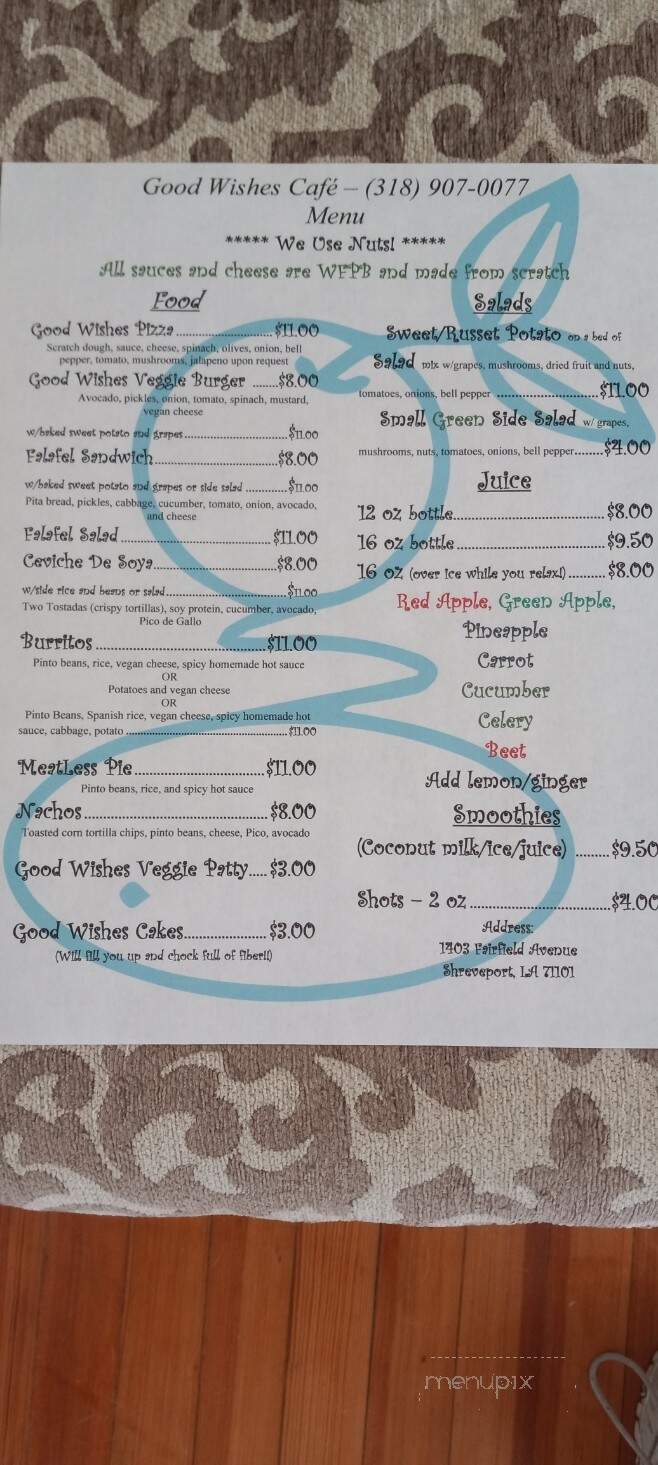 Good Wishes Café – (318) 907-0077
Menu
***** We Use Nuts! *****
All sauces and cheese are WFPB and made from scratch
Food
Good Wishes Pizza..........................$11.00
Scratch dough, sauce, cheese, spinach, olives, onion, bell
pepper, tomato, mushrooms, jalapeno upon request
Good Wishes Veggie Burger .......$8.00
Avocado, pickles, onion, tomato, spinach, mustard,
vegan cheese
w/baked sweet potato and grapes..............................$11.00
Falafel Sandwich..............................$8.00
w/baked sweet potato and grapes or side salad ............$11.00
Pita bread, pickles, cabbage, cucumber, tomato, onion, avocado,
and cheese
Falafel Salad.....................................$11.00
Ceviche De Soya..............................$8.00
w/side rice and beans or salad...................................$11.00
Two Tostadas (crispy tortillas), soy protein, cucumber, avocado,
Pico de Gallo
Burritos..........................................$11.00
Pinto beans, rice, vegan cheese, spicy homemade hot sauce
OR
Potatoes and vegan cheese
OR
Pinto Beans, Spanish rice, vegan cheese, spicy homemade hot
sauce, cabbage, potato ......................................................$11.00
MeatLess Pie................................$11.00
Pinto beans, rice, and spicy hot sauce
Nachos.............................................$8.00
Toasted corn tortilla chips, pinto beans, cheese, Pico, avocado
Good Wishes Veggie Patty.....$3.00
Good Wishes Cakes....................$3.00
(Will fill you up and chock full of fiber!!)
Salads
Sweet/Russet Potato on a bed of
Salad mix w/grapes, mushrooms, dried fruit and nuts,
tomatoes, onions, bell pepper .........................$11.00
Small Green Side Salad w/ grapes,
mushrooms, nuts, tomatoes, onions, bell pepper.......$4.00
Juice
12 oz bottle.....................................$8.00
16 oz bottle....................................$9.50
16 oz (over ice while you relax!).........$8.00
Red Apple, Green Apple,
Pineapple
Carrot
Cucumber
Celery
Beet
Add lemon/ginger
Smoothies
(Coconut milk/ice/juice) ........$9.50
Shots – 2 oz..................................$4.00
Address:
1403 Fairfield Avenue
Shreveport, LA 71101
menupix